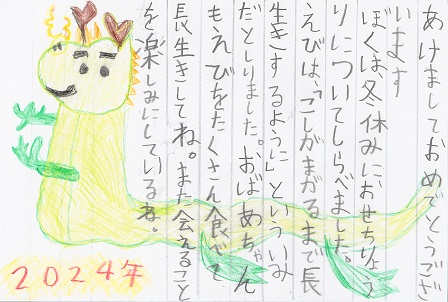 あけましておめでとうござ
います
ぼくは、冬休みにおせちりょう
りについてしらべました。
えびは、「こしがまがるまで長
生きするように」といういみ
だとしりました。おばあちゃん
もえびをたくさん食べて
長生きしてね。また会えること
を楽しみにしているね。
2024年